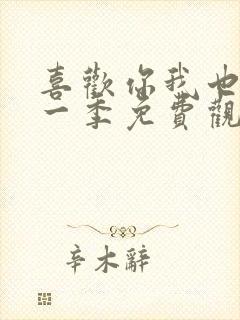 喜歡你我也
一季免費觀
辛木辭